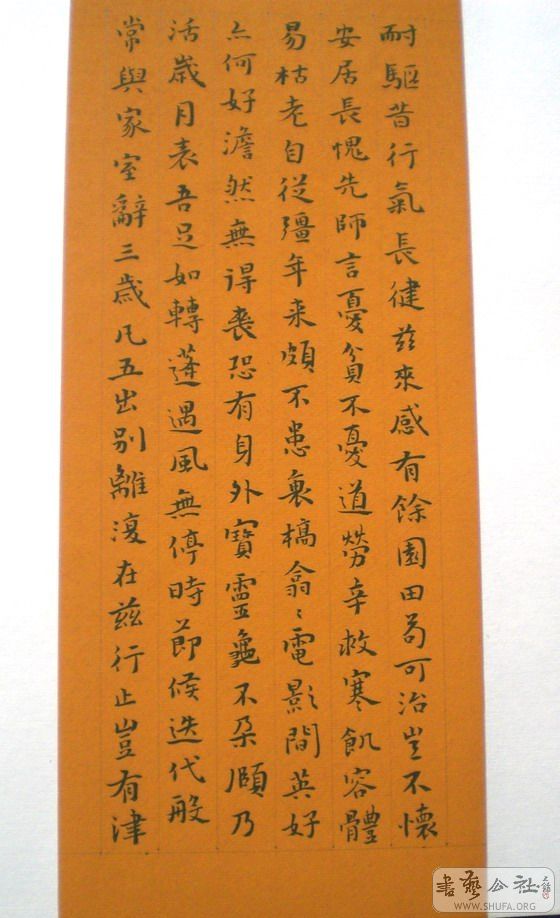 耐驅昔行氣長健茲來感有餘園田苟可治豈不懷
安居長愧先師言憂貧不憂道勞辛救寒飢容體
易枯老自從殭年来頗不患衰槁翕〻電影間英好
亦何好澹然無得喪恐有身外寶靈龜不朶頤乃
活歲月表吾足如轉蓬遇風無停時節候迭代般
常與家室辭三歲凡五出別離復在茲行止豈有津
書藝公社
WWW.SHUFA.ORG